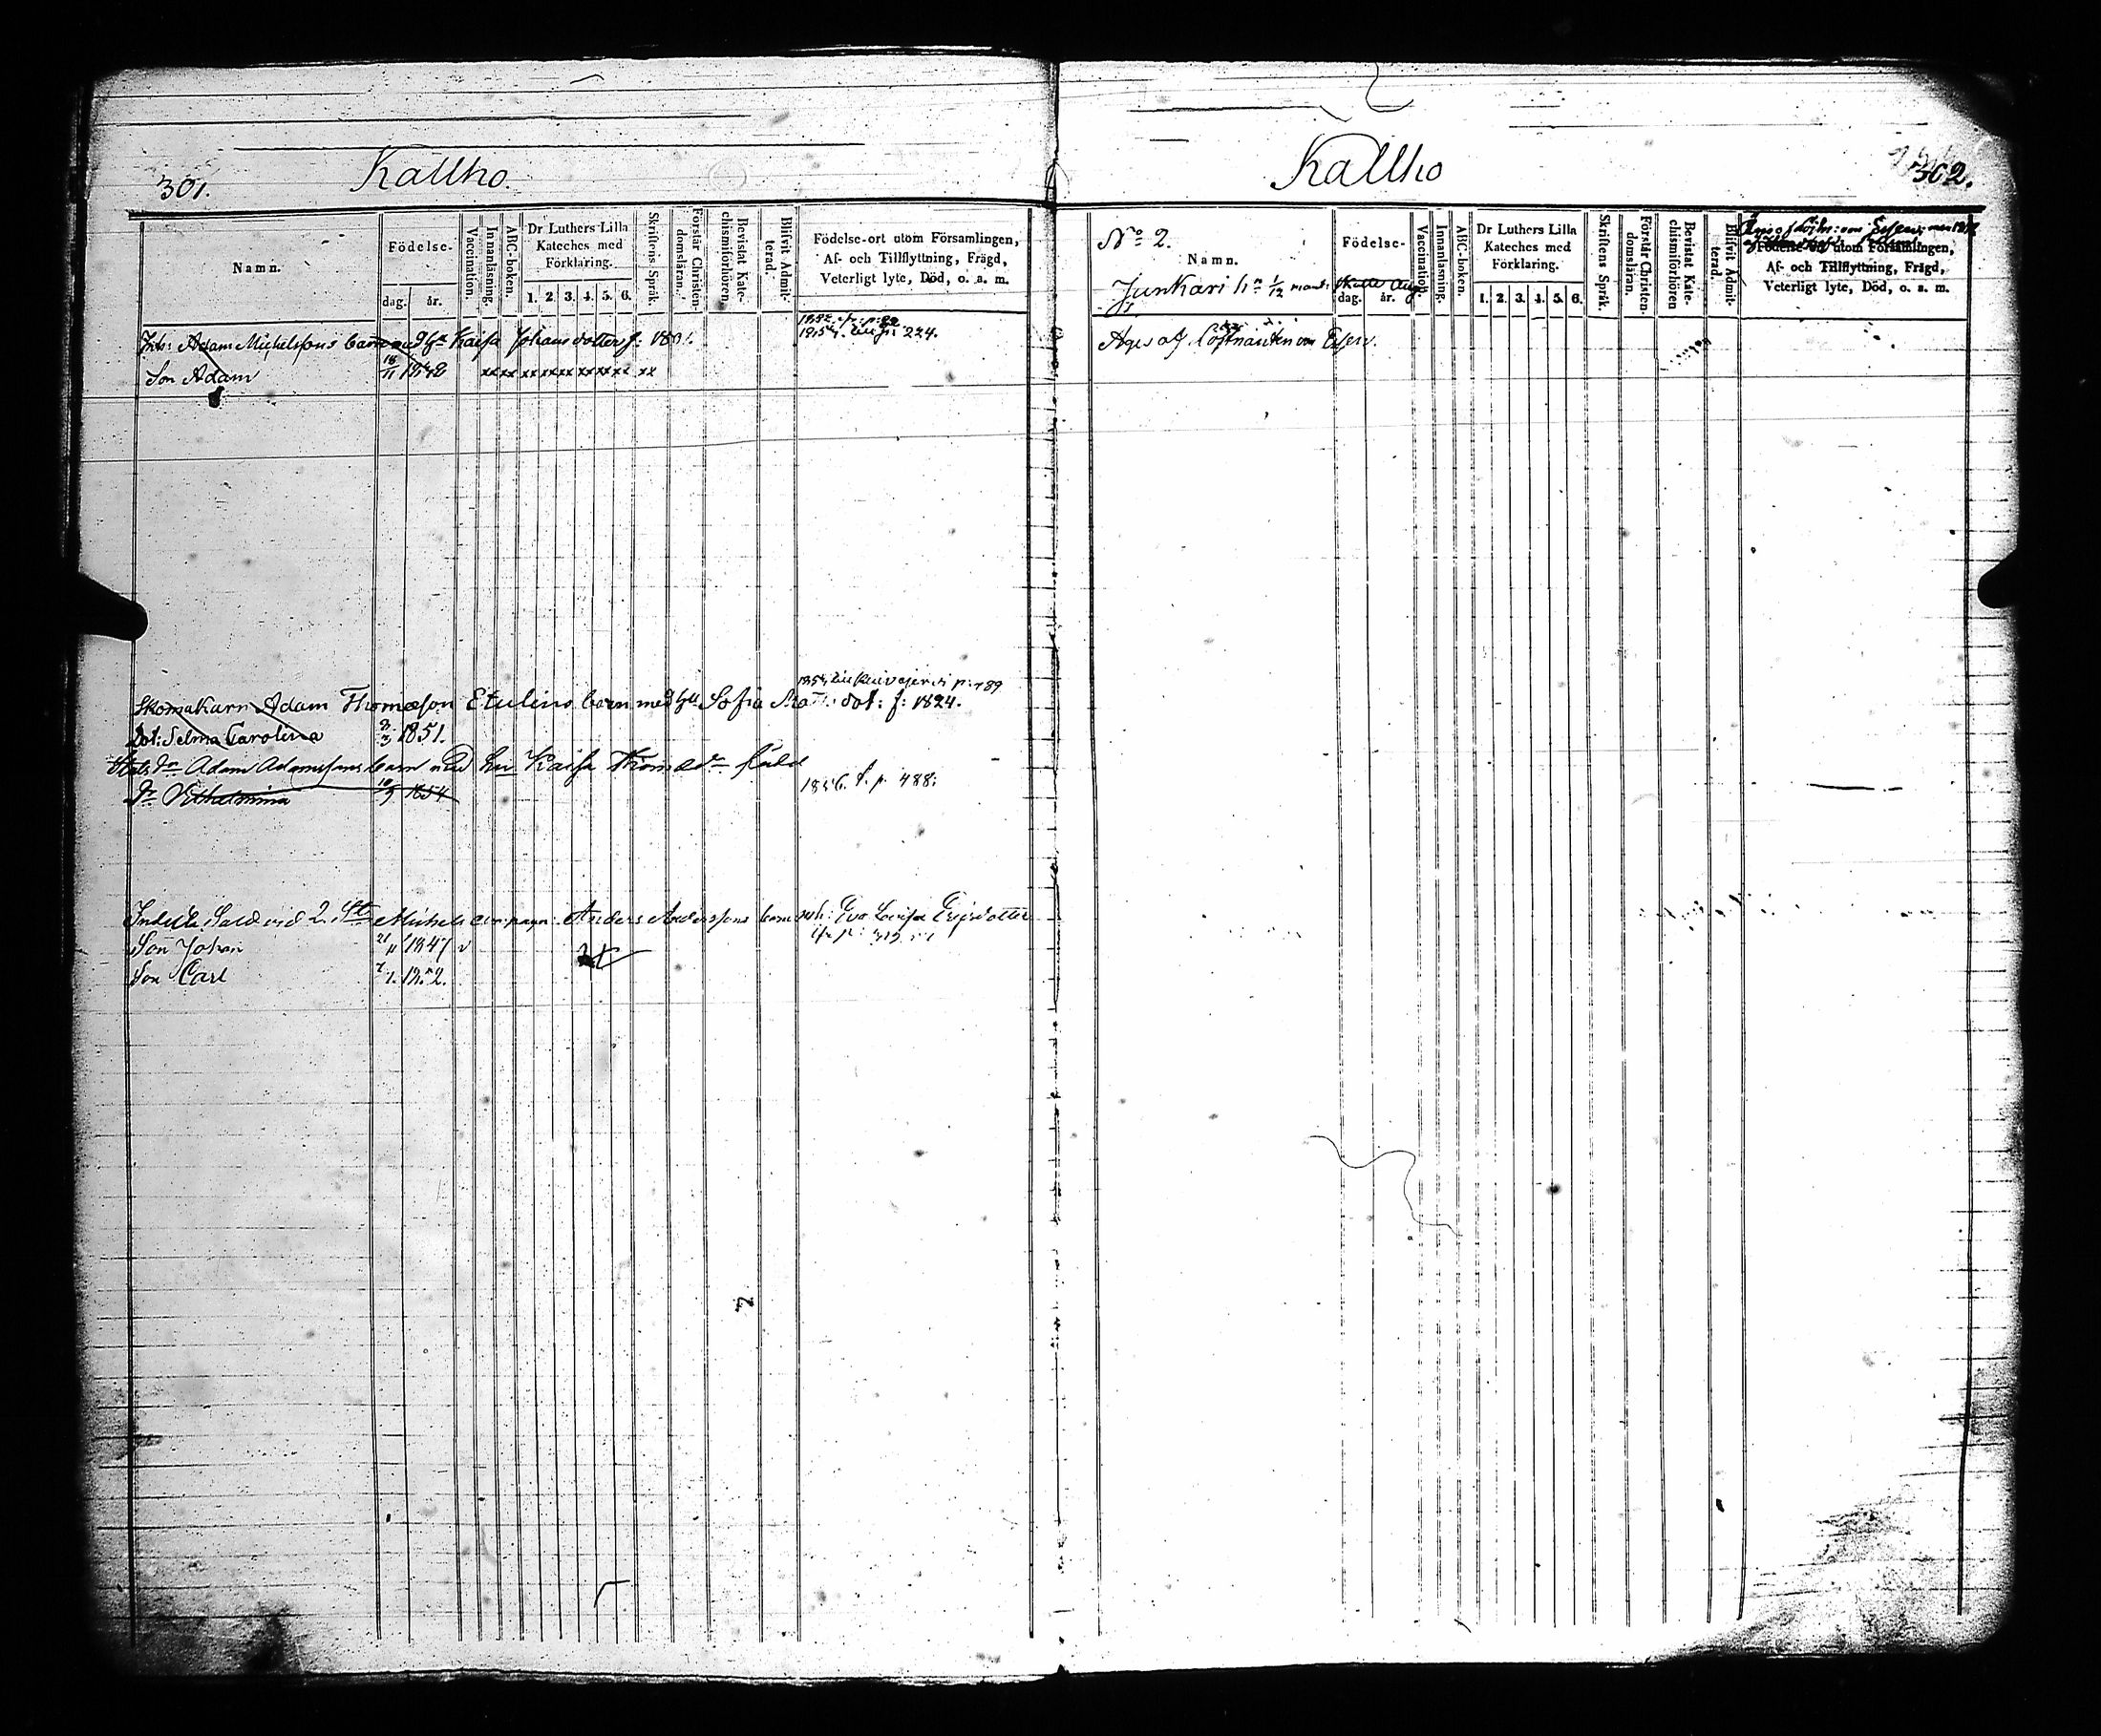 301.
Kallho.
Namn.
Födelse-
dag.
år.
Vaccination.
Innanläsning.
ABC-boken.
Dr Luthers Lilla
Kateches med
Förklaring.
1. 2. 3. 4. 5. 6.
Skriftens Språk.
Förstår Christen-
domsläran.
Bevistat Kate-
chismiförhören.
Blifvit Admit-
terad.
Födelse-ort utom Församlingen,
Af- och Tillflyttning, Frägd,
Veterligt lyte, Död, o. a. m.
Adam Michelssons barn med Kaisa Johansdotter f: 180
224.
Son Adam 18/11 1842 xx xx xx xx xx xx xx xx xx
p: 789
Skomakarn Adam Thomasson Etulins barn med Sofia dot: f: 1824.
Dot: Selma Carolina 1851.
Adam Adamssons barn med Kaisa
Dr Vilhelmina 10/9 1854
1856. f. p. 488.
Indelta Sold vid 2. St Michels compagn: Anders Anderssons barn Eva Lovisa Ersdotter
Son Johan 21/11 1847 v
Son Carl 7/1. 1852.
Kallho
362.
No 2.
Namn.
Junkari 1/12 mant:
Födelse-
dag.
år.
Vaccination.
Innanläsning.
ABC-boken.
Dr Luthers Lilla
Kateches med
Förklaring.
1. 2. 3. 4. 5. 6.
Skriftens Språk.
Förstår Christen-
domsläran.
Bevistat Kate-
chismiförhören
Blifvit Admit-
terad.
Födelse-ort utom Församlingen,
Af- och Tillflyttning, Frägd,
Veterligt lyte, Död, o. a. m.
Äges af von Essen.